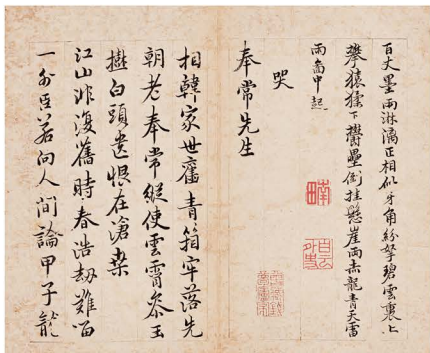 百丈墨雨淋漓正相似牙角紛拏碧雲裏上
攀猿猱下欝壘倒挂懸崖兩赤龍青天雷
雨窗中起
南田
白雲外史
哭
奉常先生
相韓家世舊青箱牢落先
朝老奉常縱使雲霄忝玉
樹白頭遺恨在滄桑
江山非復舊時春浩劫難留
一外臣若向人間論甲子能